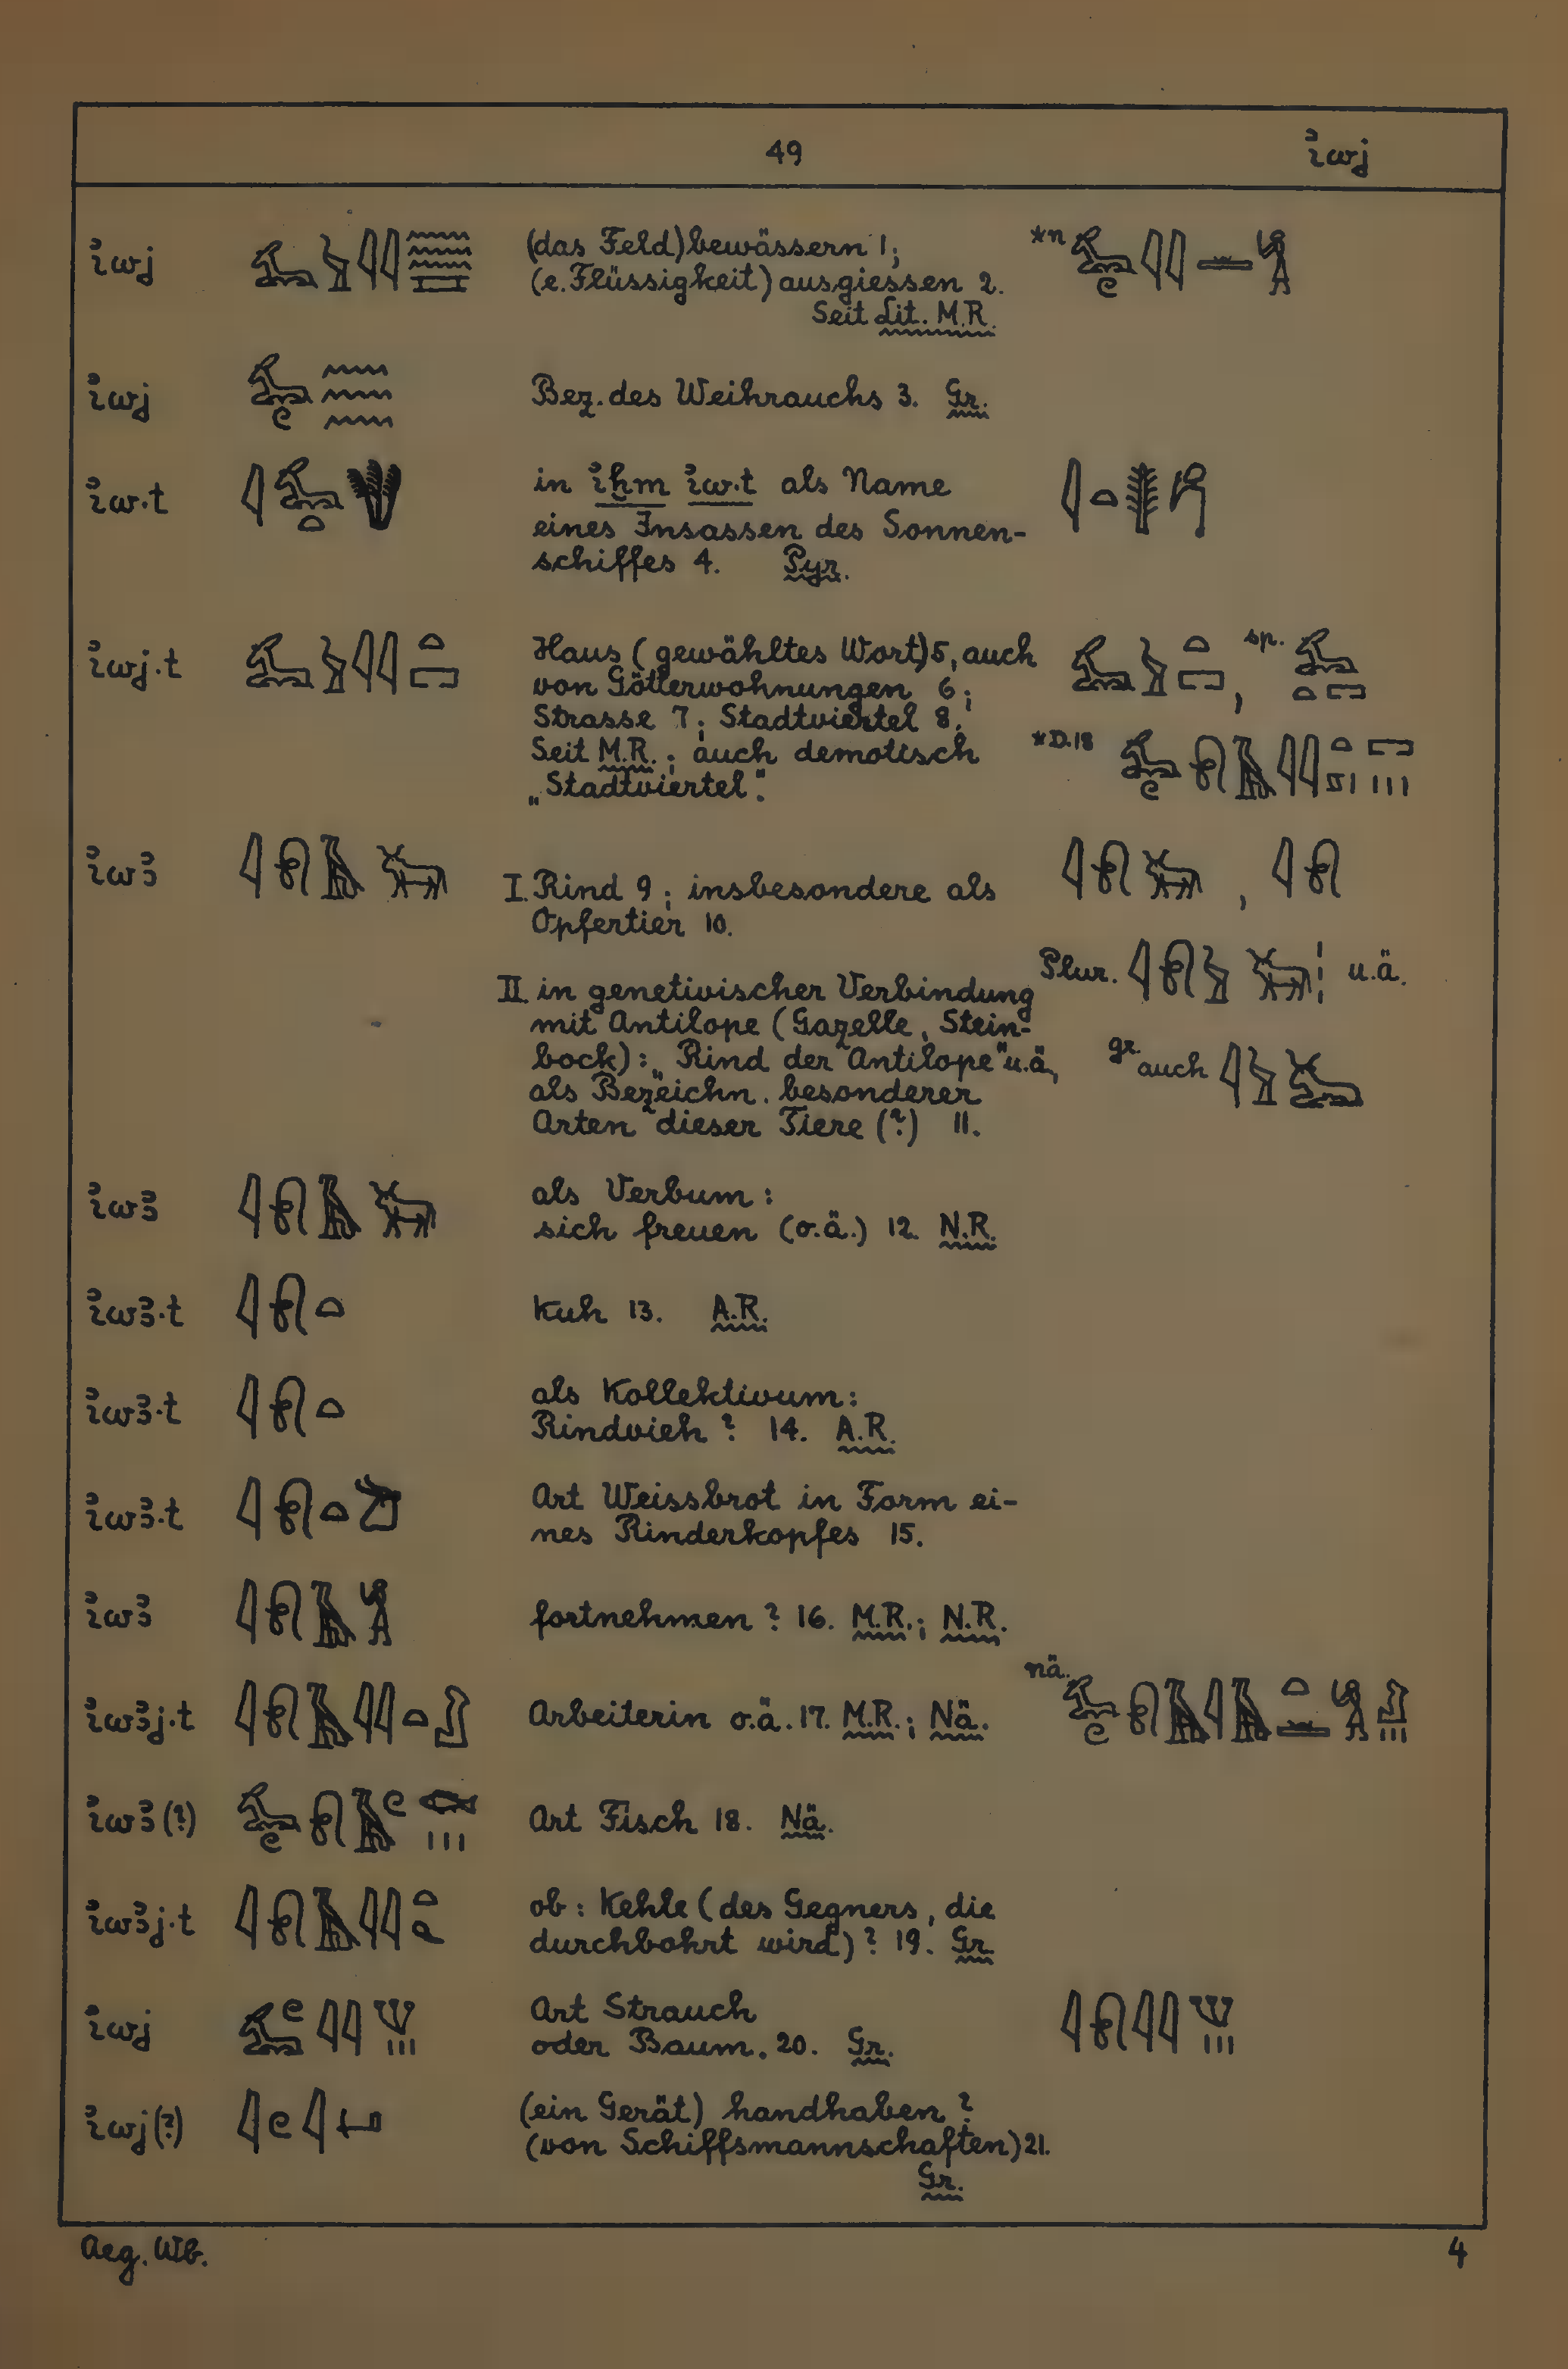 49 ꞽwj
ꞽwj (das Feld) bewässern 1; *n
(e. Flüssigkeit) ausgiessen 2.
Seit Lit. M.R.
ꞽwj Bez. des Weihrauchs 3. Gr.
ꞽw.t in ꞽḫm ꞽw.t als Name
eines Insassen des Sonnen-
schiffes 4. Pyr.
ꞽwj.t Haus (gewähltes Wort) 5, auch , sp.
von Götterwohnungen 6;
Strasse 7; Stadtviertel 8.
Seit M.R.; auch demotisch *D.18
„Stadtviertel".
ꞽwꜣ I. Rind 9; insbesondere als ,
Opfertier 10.
II. in genetivischer Verbindung Plur. u.ä.
mit Antilope (Gazelle, Stein-
bock): „Rind der Antilope" u.ä., gr. auch
als Bezeichn. besonderer
Arten dieser Tiere (?) 11.
ꞽwꜣ als Verbum:
sich freuen (o.ä.) 12. N.R.
ꞽwꜣ.t Kuh 13. A.R.
ꞽwꜣ.t als Kollektivum:
Rindvieh? 14. A.R.
ꞽwꜣ.t Art Weissbrot in Form ei-
nes Rinderkopfes 15.
ꞽwꜣ fortnehmen? 16. M.R.; N.R.
ꞽwꜣj.t Arbeiterin o.ä. 17. M.R.; Nä. nä.
ꞽwꜣ(?) Art Fisch 18. Nä.
ꞽwꜣj.t ob: Kehle (des Gegners, die
durchbohrt wird)? 19. Gr.
ꞽwj Art Strauch
oder Baum. 20. Gr.
ꞽwj(?) (ein Gerät) handhaben?
(von Schiffsmannschaften) 21.
Gr.
Aeg. Wb. 4